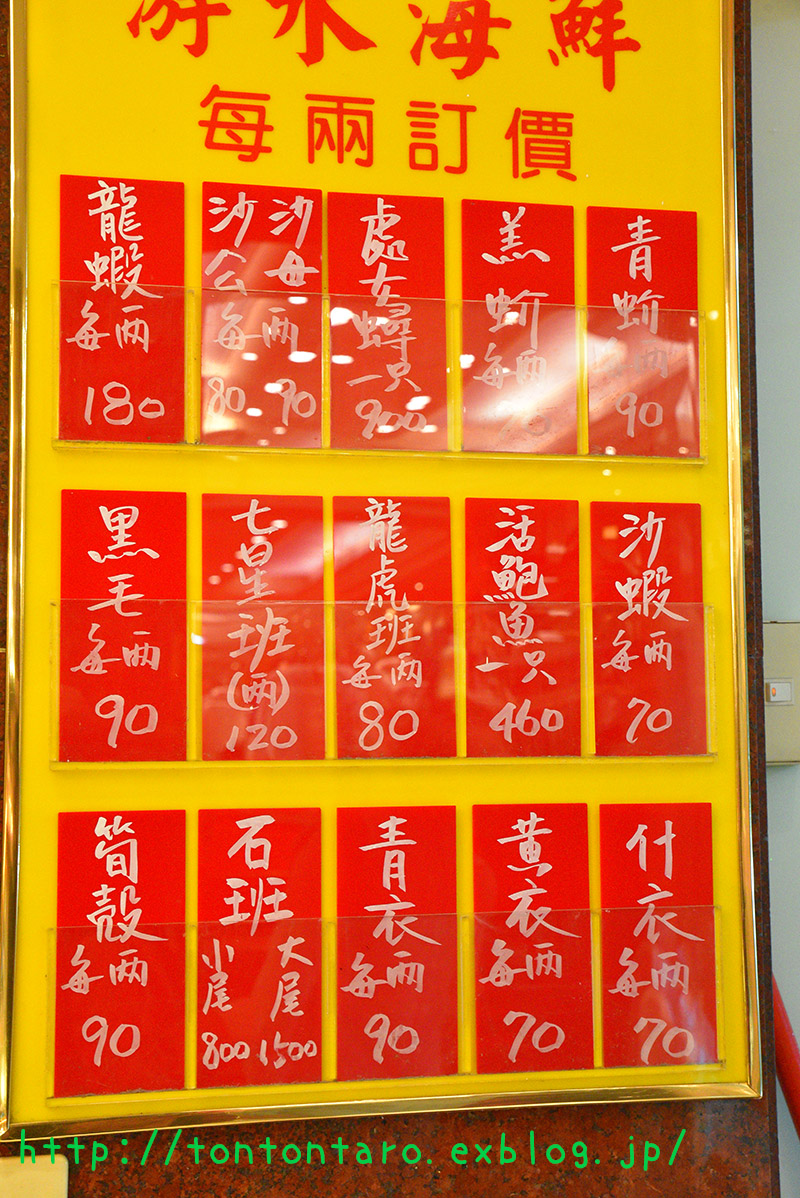 游水海鮮
每兩訂價
龍蝦
每两
180
沙母 沙公
每两
80 90
處女蟳
一只
900
羔蚧
每两
70
青蚧
每两
90
黑毛
每两
90
七星班
(两)
120
龍虎班
每两
80
活鮑魚
一只
460
沙蝦
每两
70
筍殼
每两
90
石班
大尾 1500
小尾 800
青衣
每两
90
黃衣
每两
70
什衣
每两
70
http://tontontaro.exblog.jp/